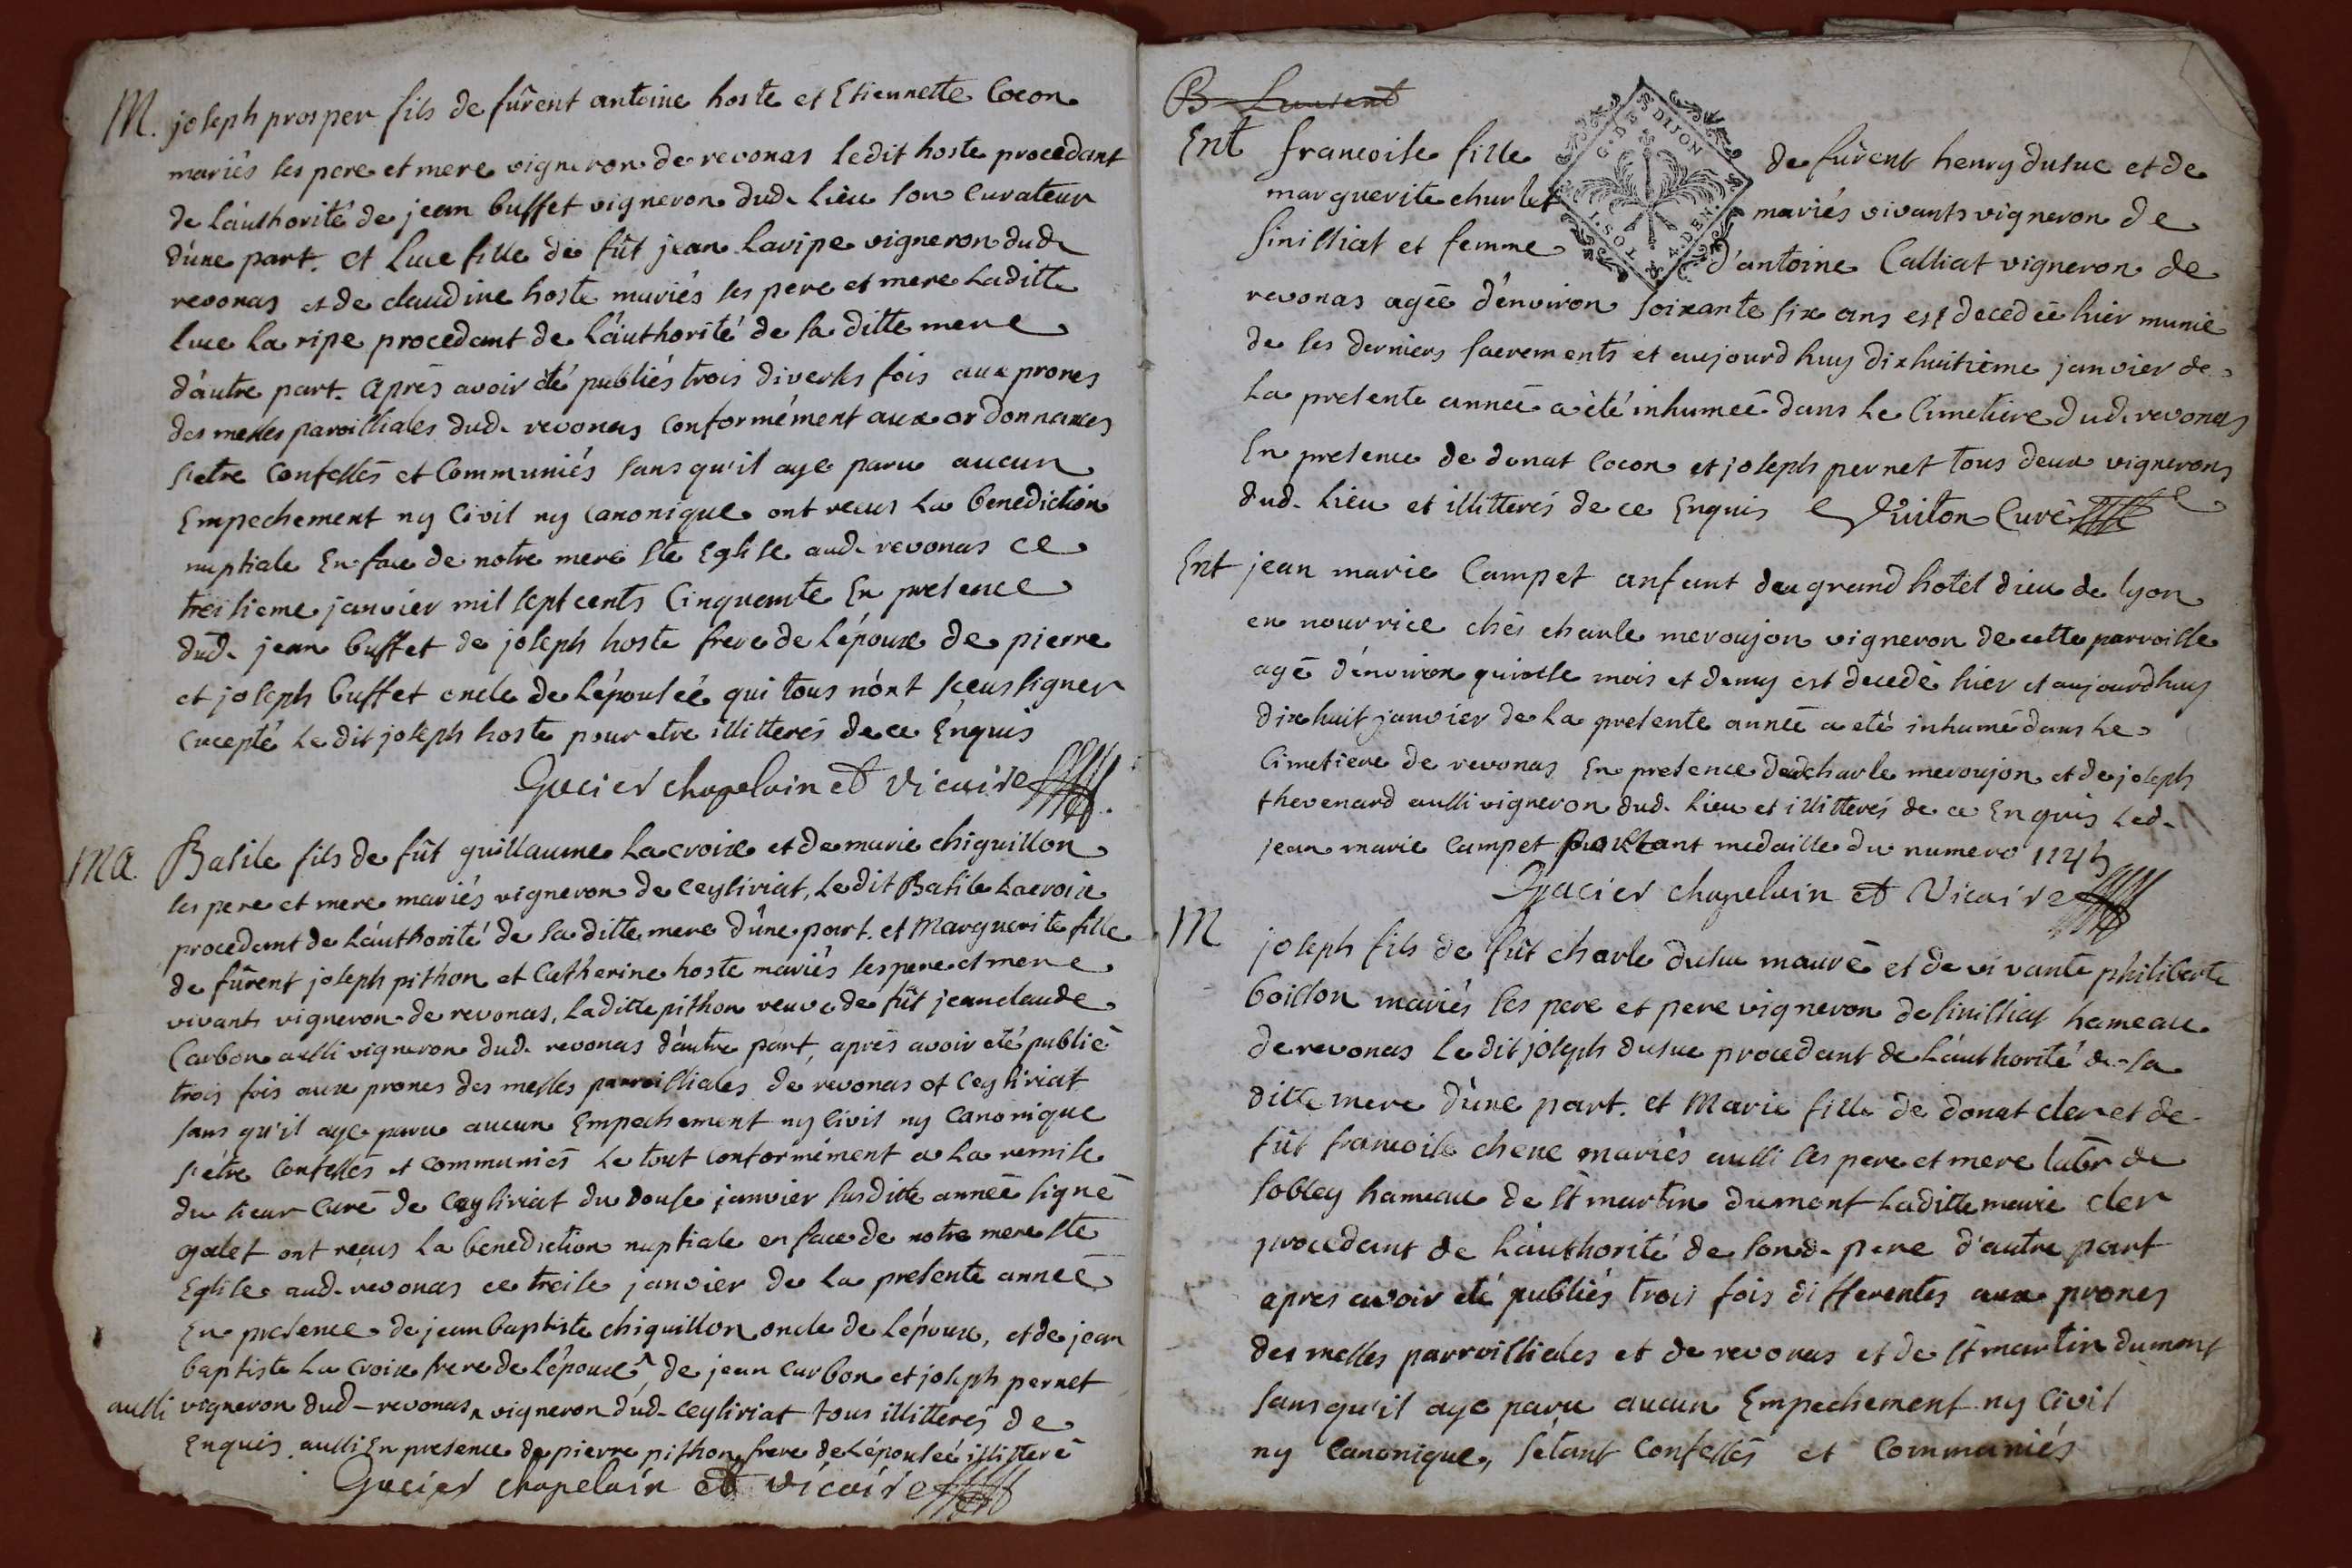 M. joseph prosper fils de fûrent antoine hoste et Etiennette Cocon
mariés ses pere et mere vigneron de revonas ledit hoste procedant
de láuthorité de jean buffet vigneron dud. lieu son Curateur
d'une part. et Luce fille de fût jean Laripe vigneron dud.
revonas et de claudine hoste mariés ses pere et mere Laditte
luce La ripe procedant de Láuthorité de sa ditte mere
dáutre part. après avoir été publiés trois diverses fois aux prones
des messes paroissiales dud. revonas Conformément aux ordonnances
s'etre Confessés et Communiés sans qu'il aye paru aucun
Empechement ny Civil ny canonique ont recus La benediction
nuptiale En face de notre mere Ste Eglise aud. revonas ce
treisieme janvier mil sept cents Cinquante En presence
dud. jean buffet de joseph hoste frere de Lépoux de pierre
et joseph buffet oncle de Lépouseé qui tous nónt sceus signer
Excepté Le dit joseph hoste pour etre illitterés de ce Enquis
Gacier chapelain et Vicaire
Ma. Basile fils de fût guillaume Lacroix et de marie chiquillon
ses pere et mere mariés vigneron de Ceysiriat, Le dit Basile Lacroix
procedant de Láuthorité de sa ditte mere d'une part. et Marguerite fille
de fûrent joseph pithon et Catherine hoste mariés ses pere et mere
vivants vigneron de revonas, Laditte pithon veuve de fût jean claude
Carbon aussi vigneron dud. revonas dáutre part, après avoir eté publié
trois fois aux prones des messes parroissiales de revonas et Ceysiriat
sans qu'il aye paru aucun Empechement ny Civil ny Canonique
s'être Confessés et communiés Le tout conformément a La remise
du sieur Curé de Ceysiriat du douse janvier susditte anneé signé
galet ont reçus La benediction nuptiale en face de notre mere Ste
Eglise aud. revonas ce treise janvier de La presente anneé
En presence de jean baptiste chiquillon oncle de Lépoux, et de jean
baptiste La croix frere de Lépoux, de jean Carbon et joseph pernet
aussi vigneron dud. revonas vigneron dúd. Ceysiriat tous illitterés de
Enquis. aussi En presence de pierre pithon frere de Lépouseé illitteré
Gacier chapelain et vicaire
B Laurent
G. DE DIJON
Ent francoise fille de fûrent henry dusuc et de
marguerite churlet mariés vivants vigneron de
sinissiat et femme d'antoine Calliat vigneron de
revonas ageé d'énviron soixante six ans est decedeé hier munie
de ses derniers sacrements et aujourd huy dixhuitieme janvier de
La presente anneé a été inhumeé dans Le Cimetiere dud. revonas
En presence de donat Cocon et joseph pernet tous deux vignerons
dud. Lieu et illitterés de ce Enquis Curé
Ent jean marie Campet anfant du grand hotel dieu de lyon
en nourrice chés charle meroujon vigneron de cette parroisse
agé d'énviron quinse mois et demy est decedé hier et aujourdhuy
dixhuit janvier de La presente anneé a eté inhumé dans Le
Cimetiere de revonas En presence dud charle meroujon et de joseph
thevenard aussi vigneron dud. Lieu et illitterés de ce Enquis Led.
jean marie Campet portant medaille du numero
Gacier chapelain et Vicaire
M joseph fils de fût charle dusuc mauré et de vivante philiberte
boisson mariés ses pere et pere vigneron de sinissiat hameau
de revonas Le dit joseph dusuc procedant de Láuthorité de sa
ditte mere d'une part. et Marie fille de donat cler et de
fût francoise chene mariés aussi ses pere et mere de
soblay hameau de St martin dumont Laditte marie cler
procedant de Láuthorité de sond. pere d'autre part
après avoir eté publiés trois fois differentes aux prones
des messes parroissiales et de revonas et de St martin dumont
sans qu'il aye paru aucun Empechement ny Civil
ny Canonique, sétant Confessés et Communiés